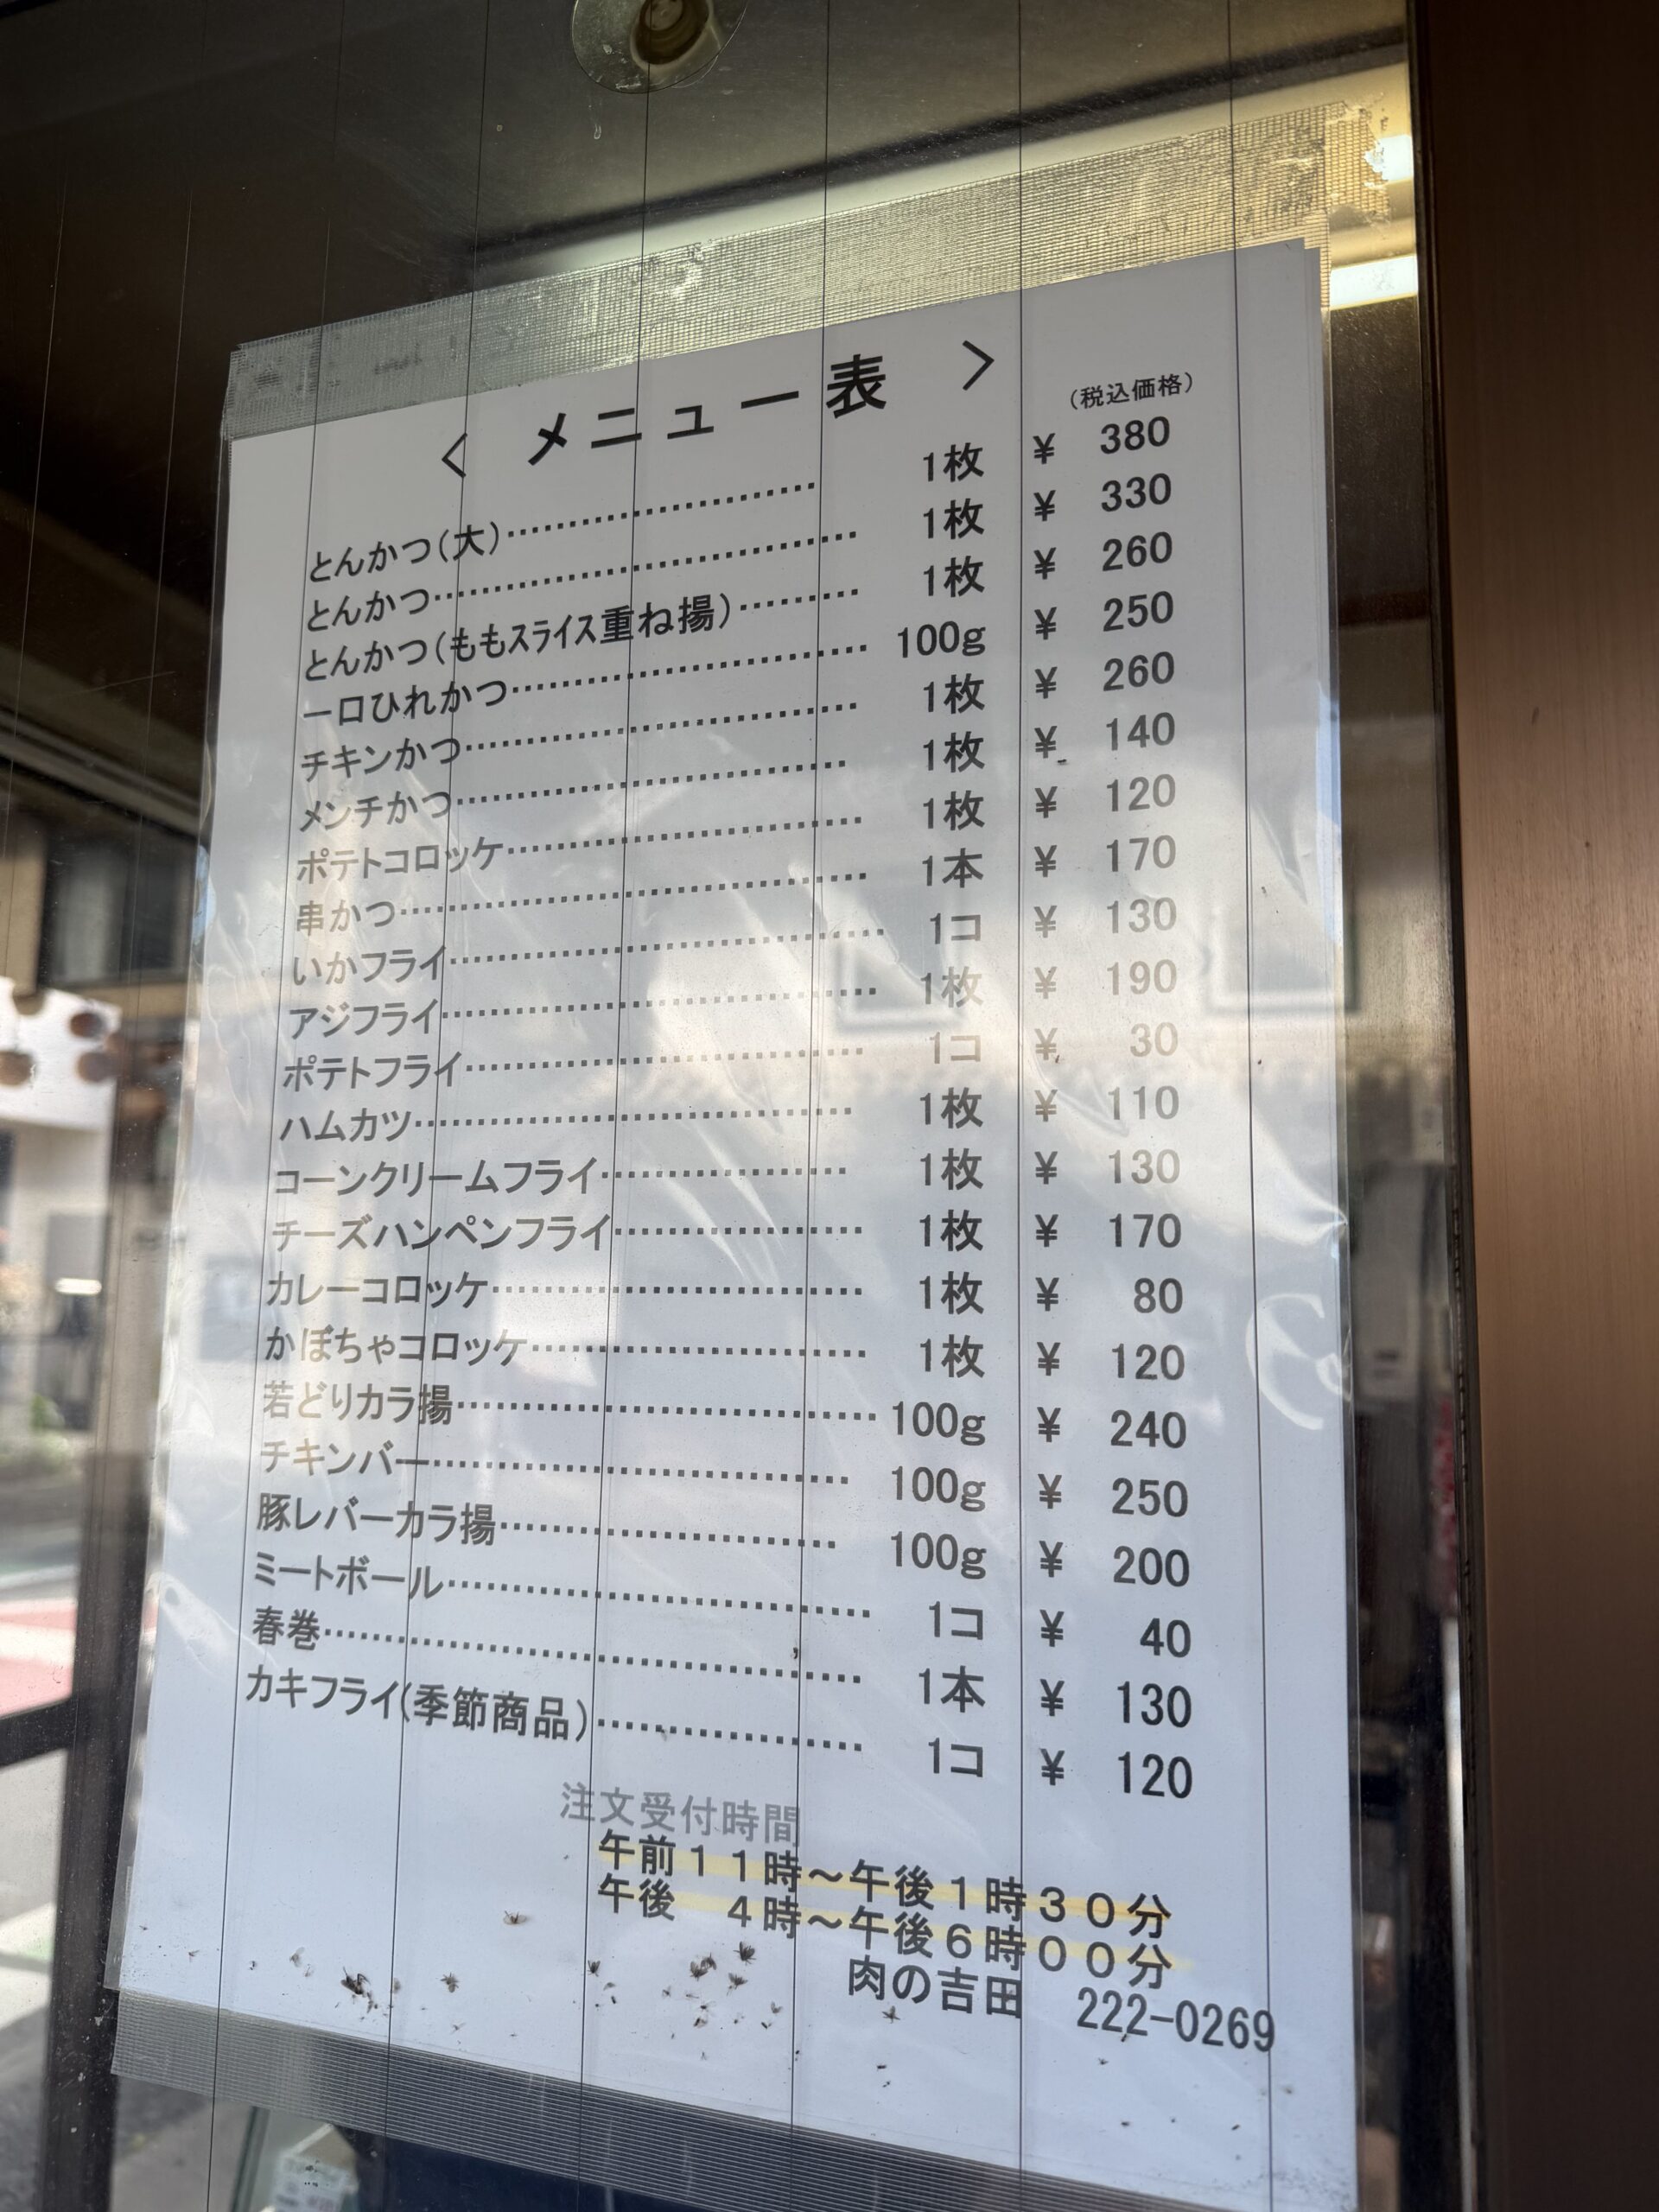 < メニュー表 >
(税込価格)
とんかつ(大)…………………… 1枚 ¥ 380
とんかつ…………………… 1枚 ¥ 330
とんかつ(ももスライス重ね揚)……… 1枚 ¥ 260
一口ひれかつ…………………… 100g ¥ 250
チキンかつ…………………… 1枚 ¥ 260
メンチかつ…………………… 1枚 ¥ 140
ポテトコロッケ…………………… 1枚 ¥ 120
串かつ…………………… 1本 ¥ 170
いかフライ…………………… 1コ ¥ 130
アジフライ…………………… 1枚 ¥ 190
ポテトフライ…………………… 1コ ¥ 30
ハムカツ…………………… 1枚 ¥ 110
コーンクリームフライ…………… 1枚 ¥ 130
チーズハンペンフライ…………… 1枚 ¥ 170
カレーコロッケ…………………… 1枚 ¥ 80
かぼちゃコロッケ…………………… 1枚 ¥ 120
若どりカラ揚…………………… 100g ¥ 240
チキンバー…………………… 100g ¥ 250
豚レバーカラ揚…………………… 100g ¥ 200
ミートボール…………………… 1コ ¥ 40
春巻…………………… 1本 ¥ 130
カキフライ(季節商品)…………… 1コ ¥ 120
注文受付時間
午前11時～午後1時30分
午後 4時～午後6時00分
肉の吉田 222-0269